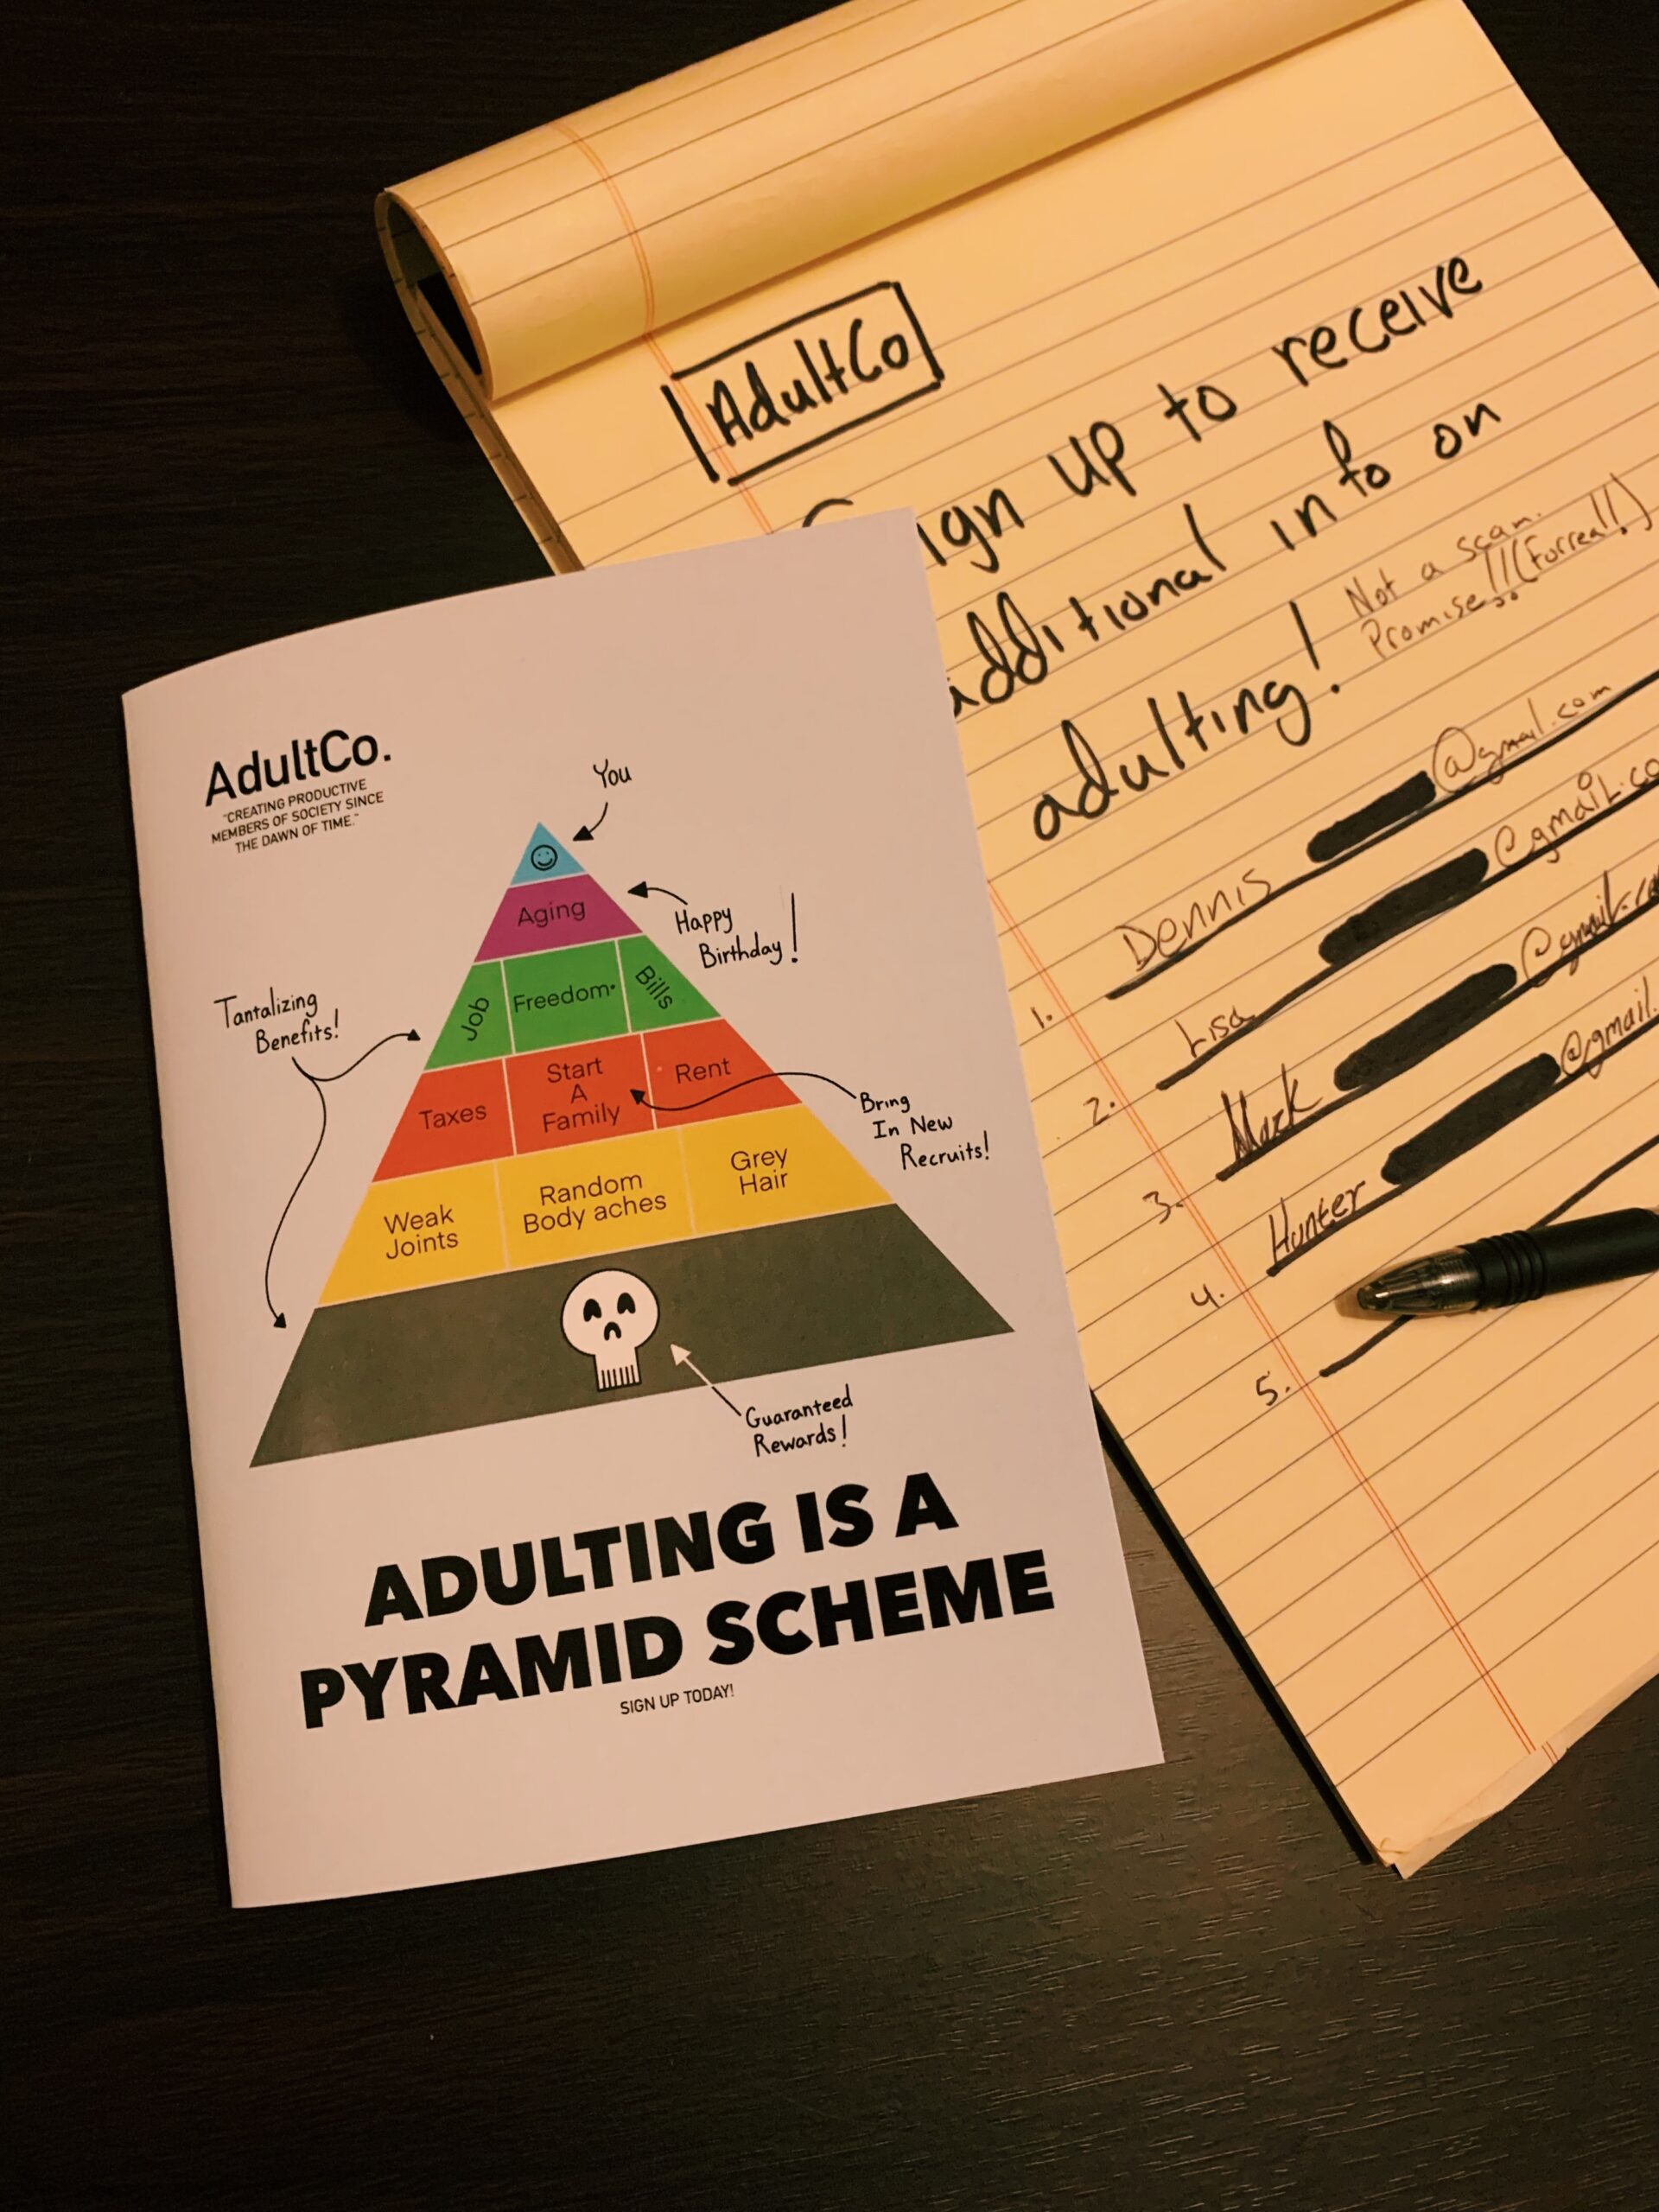 AdultCo.
"CREATING PRODUCTIVE
MEMBERS OF SOCIETY SINCE
THE DAWN OF TIME."
You
Aging
Happy
Birthday!
Tantalizing
Benefits!
Job
Freedom
Bills
Taxes
Start
A
Family
Rent
Bring
In New
Recruits!
Weak
Joints
Random
Body aches
Grey
Hair
Guaranteed
Rewards!
ADULTING IS A
PYRAMID SCHEME
SIGN UP TODAY!
AdultCo
Sign up to receive
additional info on
adulting!
Not a scam.
Promise!!!(Forreal!!)
1. Dennis @gmail.com
2. Lisa @gmail.co
3. Mark @gmail.co
4. Hunter @gmail.
5.